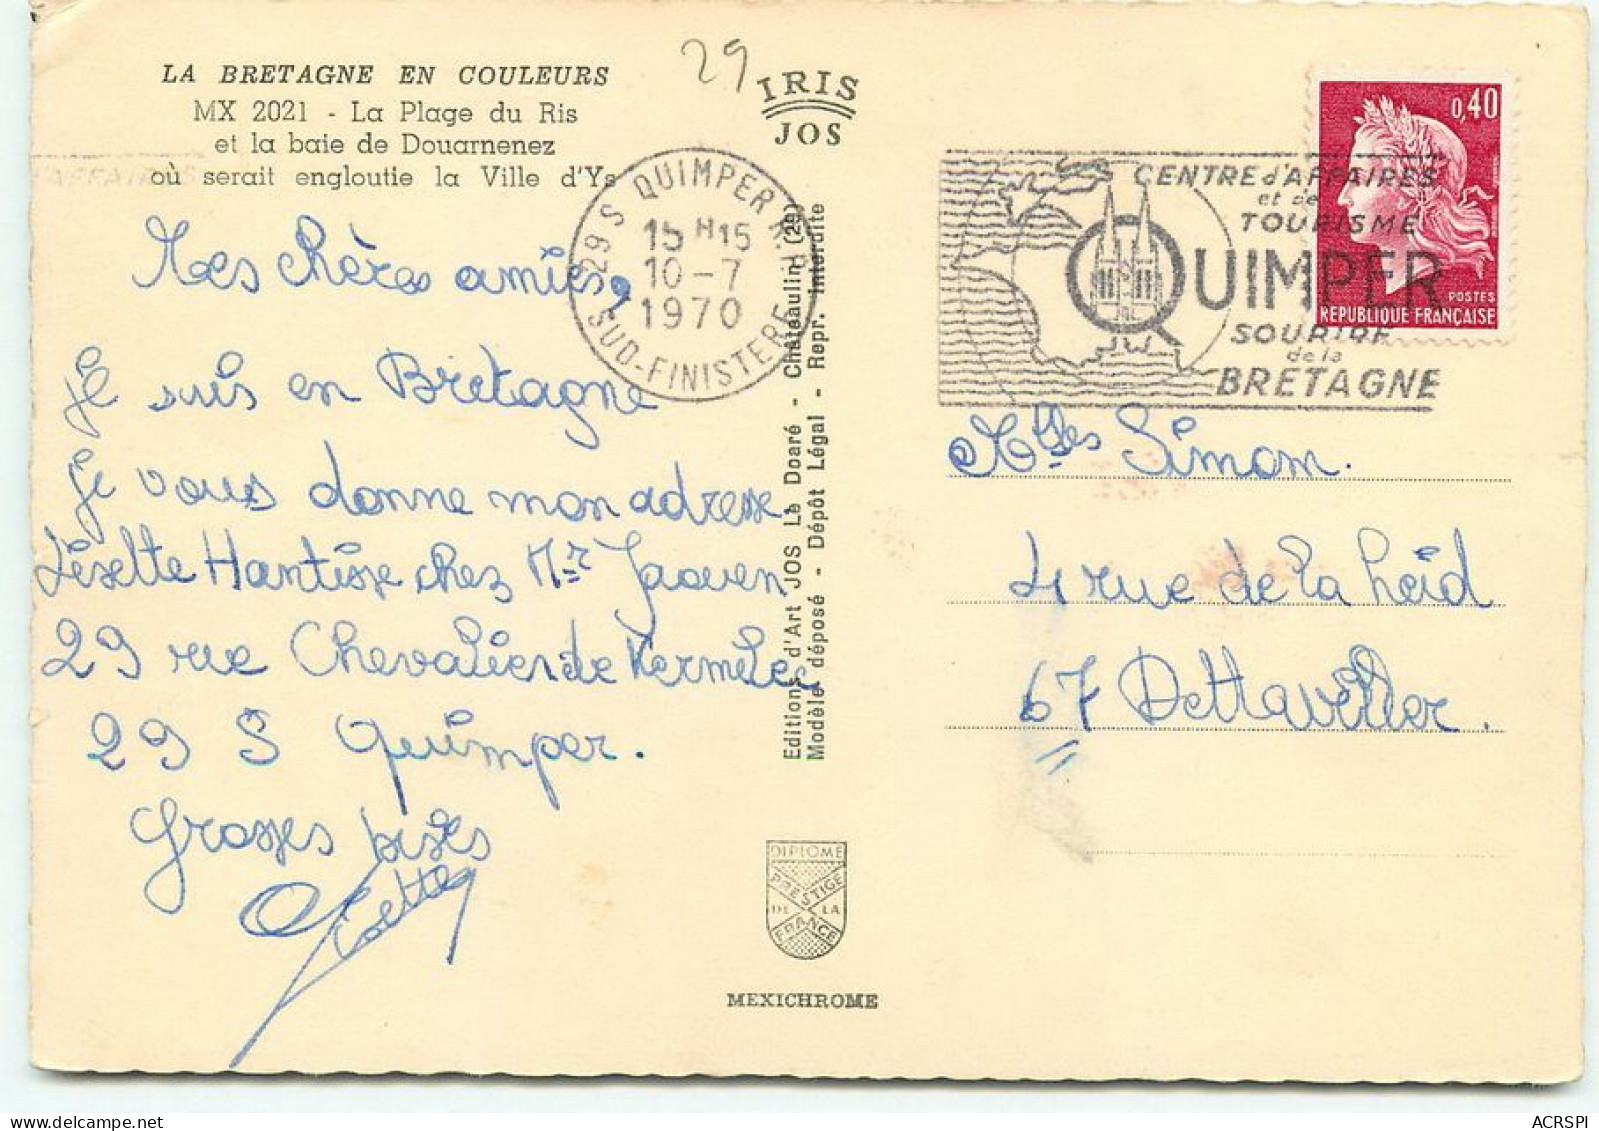 LA BRETAGNE EN COULEURS
MX 2021 - La Plage du Ris
et la baie de Douarnenez
où serait engloutie la Ville d'Ys
29
IRIS
JOS
29 S QUIMPER R.P.
15 H15
10-7
1970
SUD-FINISTERE
CENTRE d'AFFAIRES
et de
TOURISME
QUIMPER
SOURIRE
de la
BRETAGNE
0,40
POSTES
REPUBLIQUE FRANÇAISE
Mes chères amies,
je suis en Bretagne
je vous donne mon adresse.
Lisette chez Mr Jaouen
29 rue Chevalier de
29 S Quimper.
Grosses bises
Editions d'Art JOS Le Doaré - Châteaulin (29)
Modèle déposé - Dépôt Légal - Repr. interdite
Mlles Simon.
4 rue de la
67 Dettwiller.
DIPLOME
PRESTIGE
DE LA
FRANCE
MEXICHROME
ACRSPI